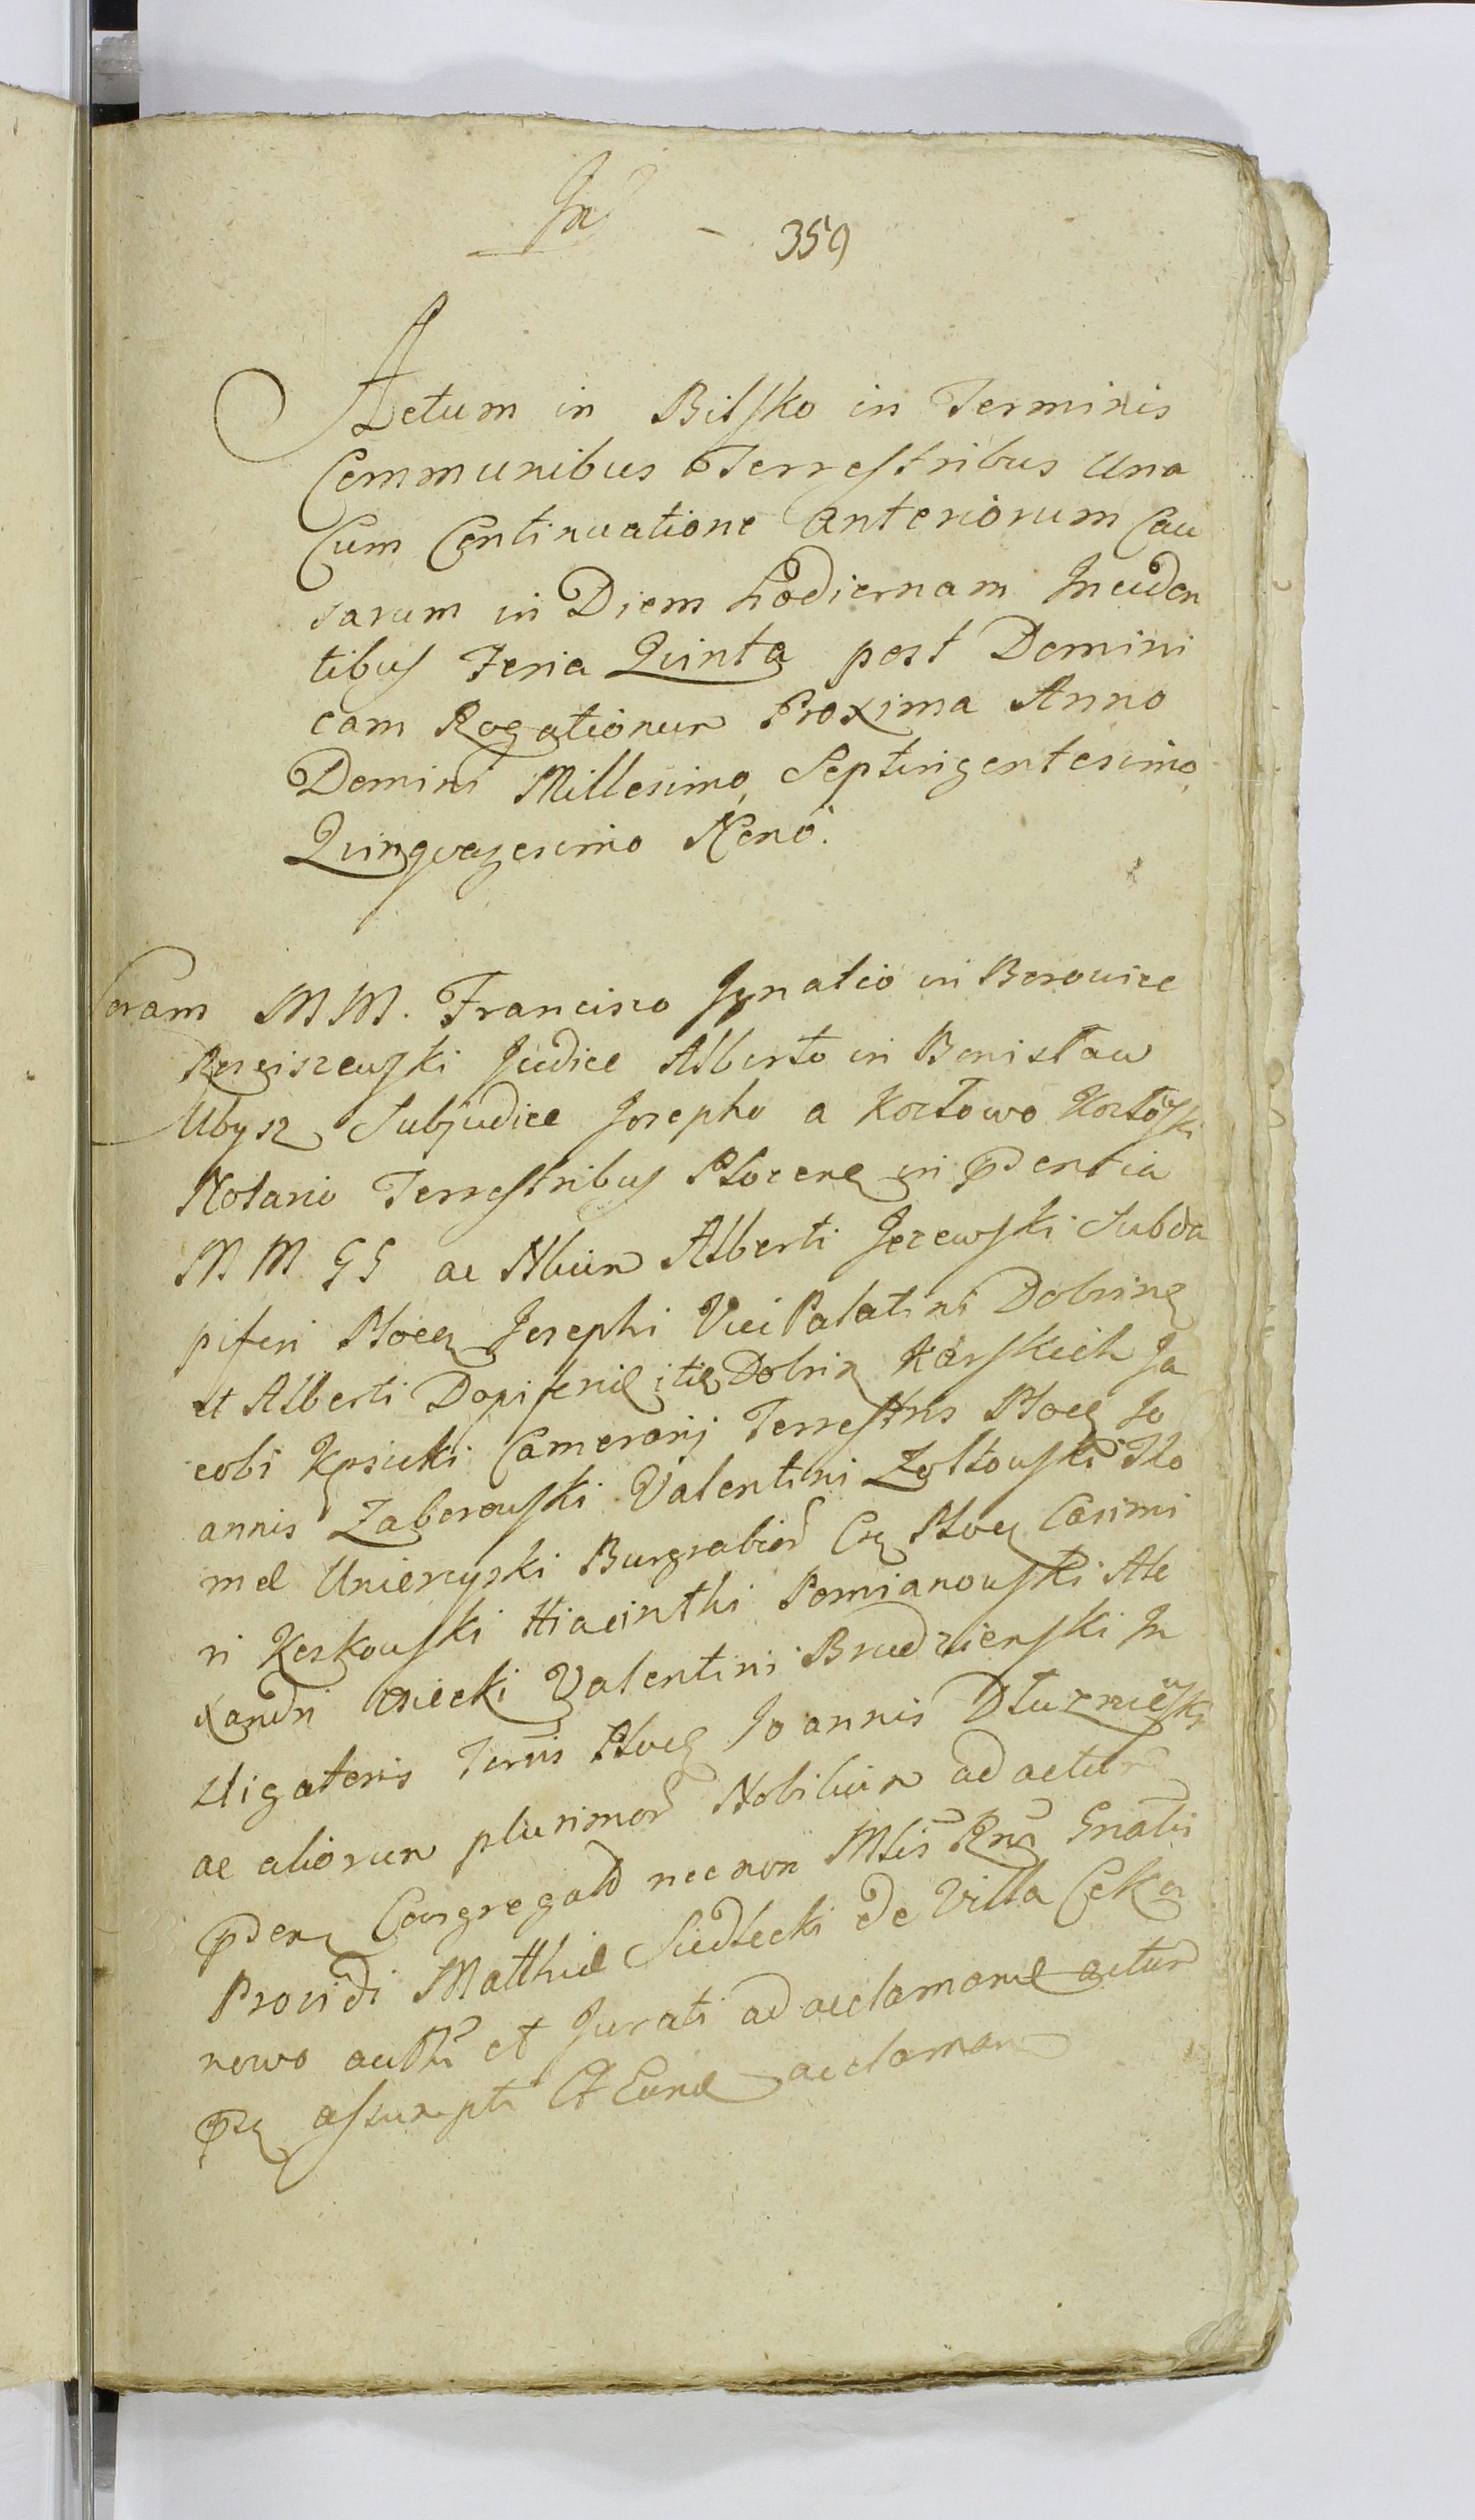 359
Actum in Bilsko in Terminis
Communibus Terrestribus Una
Cum Continuatione Anteriorum Cau
sarum in Diem hodiernam Inciden
tibus Feria Quinta post Domini
cam Rogationum Proxima Anno
Domini Millesimo, Septingentesimo,
Quinquagesimo Nono.
Coram M M. Francisco Ignatio in Borowice
Rosciszewski Judice Alberto in Bonisław
Ubysz Subjudice Josepho a Kozłowo Kozłowski
Notario Terrestribus Plocen in pdentia
M M G G ac Nbium Alberti Jezewski Subda
piferi Plocen Josephi Vice Palatini Dobrinen
et Alberti Dapiferide itidem Dobrin Karskich Ja
cobi Kęsicki Camerarij Terrestris Plocen Jo
annis Zaborowski Valentini Zołtowski Tho
mae Unierzyski Burgrabior Cen Plocen Casimi
ri Koskowski Hiacinthi Pomianowski Ale
xandri Osiecki Valentini Brudzienski In
stigatoris Terris Plocen Joannis Dłuzniewski
ac aliorum plurimor Nobilium ad actum
pden Congregator necnon Mtis Rna Gnalis
Providi Matthiae Siedlecki de Villa Ceka
nowo autti et Jurati ad acclamand actum
pn assumpti Et Eund acclaman